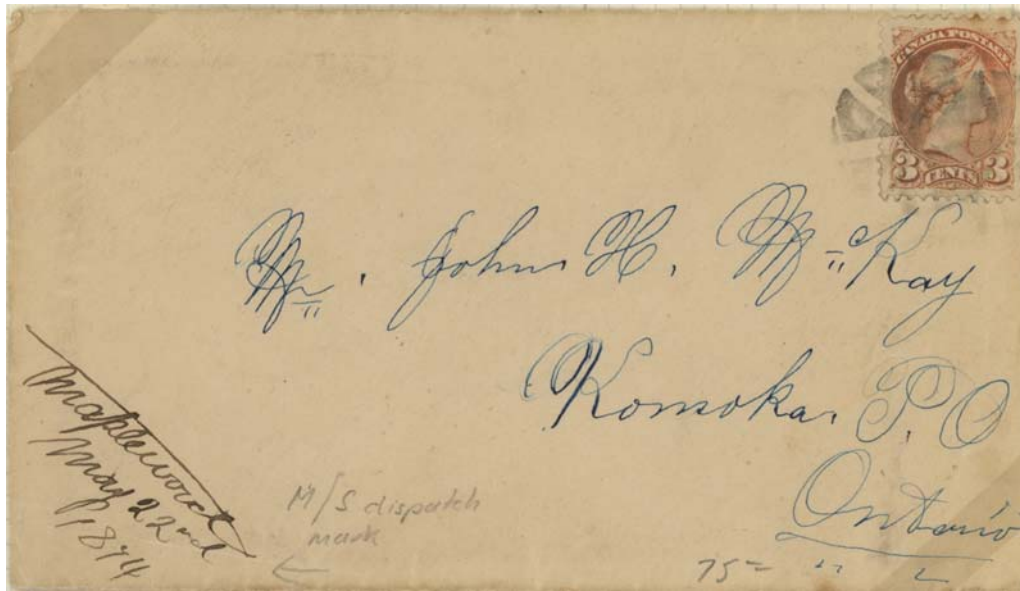 CANADA POSTAGE
3 CENTS 3
Mr. John H. McKay
Komoka. P.O
Ontario
Maplewood
May 22nd
1874
M/S dispatch
mark
75